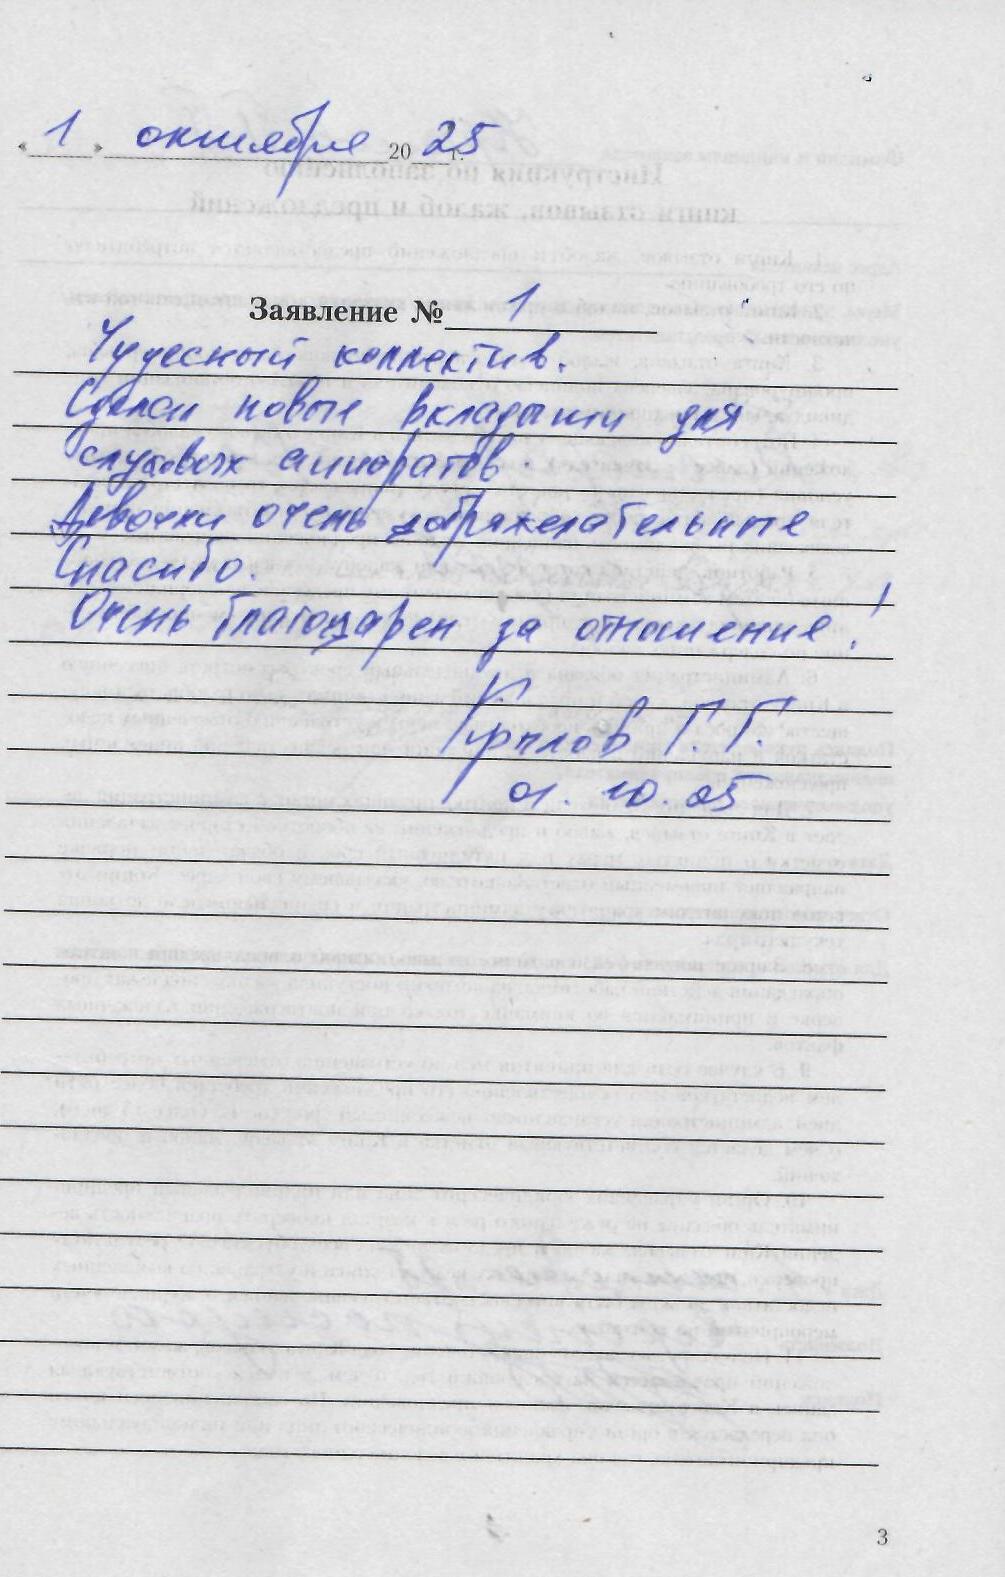 « 1 » октября 20 25 г.
Заявление № 1
Чудесный коллектив.
Сделал новые вкладыши для
слуховых аппаратов.
Девочки очень доброжелательные
Спасибо.
Очень благодарен за отношение!
Г. Г.
01. 10. 25
3